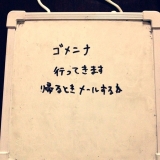 ゴメンナ
行ってきます
帰るときメールするな